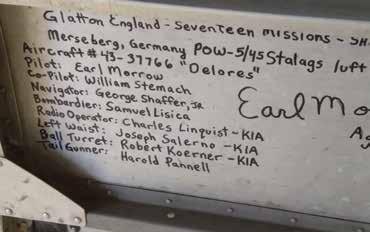 Glatton England - Seventeen missions - SH
Merseberg, Germany POW-5/45 Stalags luft
Aircraft #43-37766 "Delores"
Pilot: Earl Morrow
Co-Pilot: William Stemach
Navigator: George Shaffer, JR
Bombardier: Samuel Lisica
Radio Operator: Charles Linquist -KIA
Left Waist: Joseph Salerno -KIA
Ball Turret: Robert Koerner -KIA
Tail Gunner: Harold Pannell
Earl Mo
A